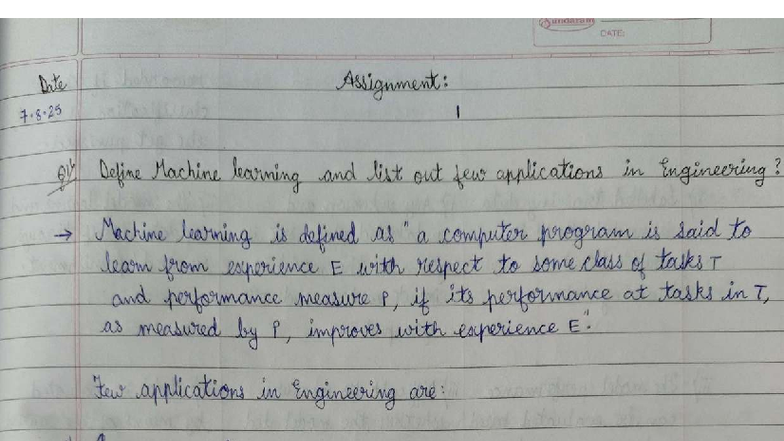 Sundaram
DATE:
Date
Assignment:
7.8.25
1
Q1. Define Machine learning and list out few applications in Engineering?
→ Machine learning is defined as "a computer program is said to
learn from experience E with respect to some class of tasks T
and performance measure P, if its performance at tasks in T,
as measured by P, improves with experience E."
Few applications in Engineering are: